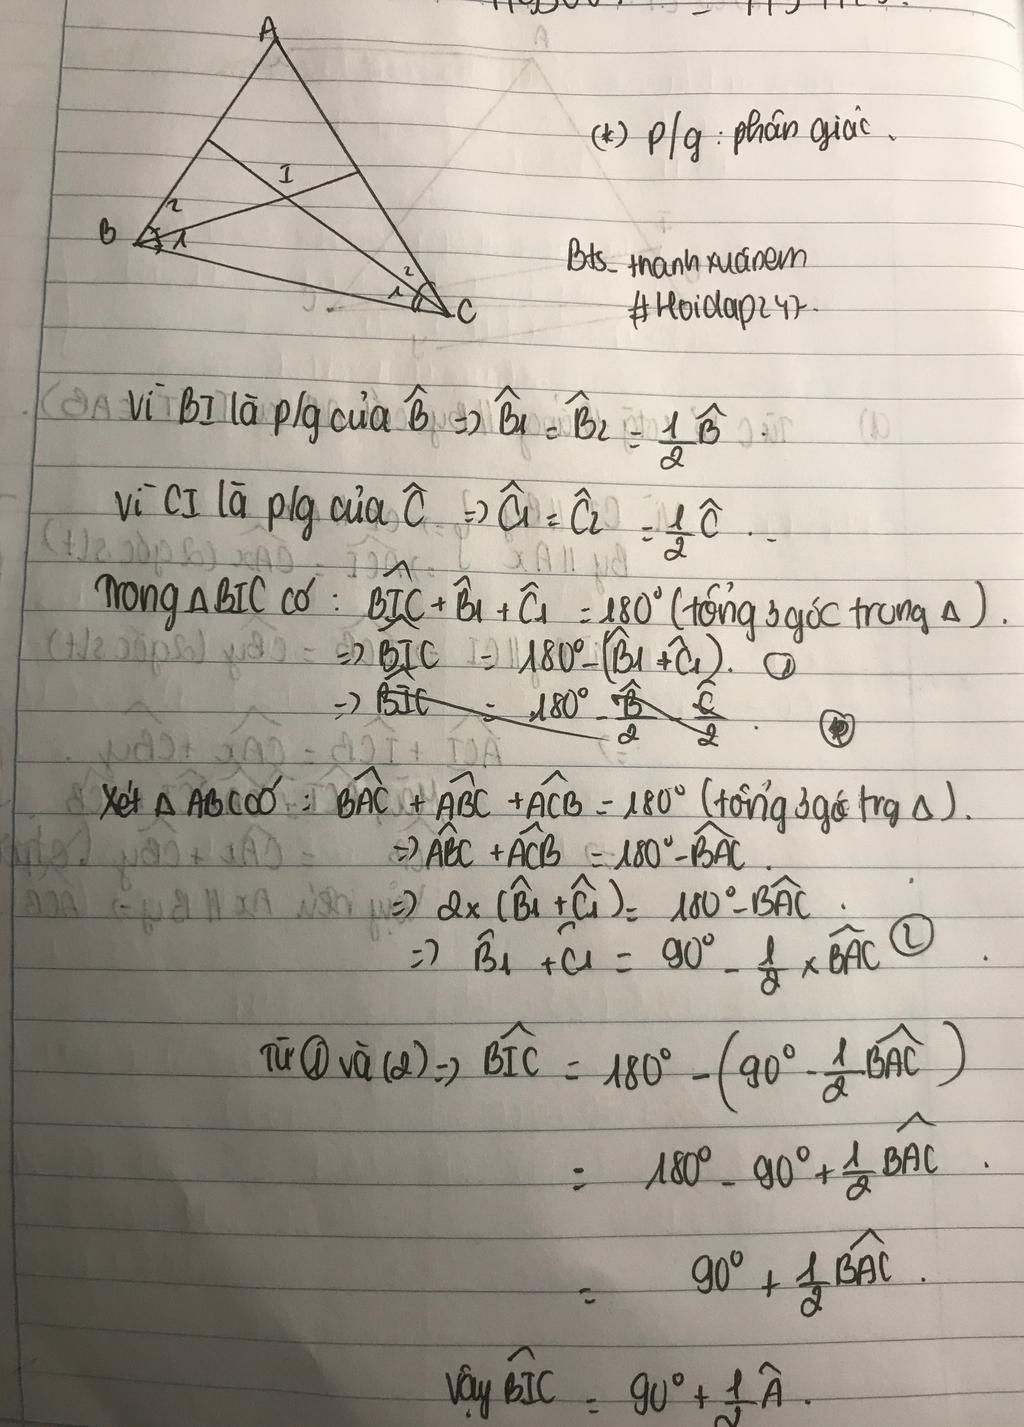 A
(*) p/g : phân giác .
I
2
B
1
2
1
C
Bts_thanhxuanem
#Hoidap247.
Vì BI là p/g của B̂ => B̂1 = B̂2 = 1/2 B̂ .
Vì CI là p/g của Ĉ => Ĉ1 = Ĉ2 = 1/2 Ĉ .
Trong △ BIC có : BIC^ + B̂1 + Ĉ1 = 180° (tổng 3 góc trong △) .
=> BIC^ = 180° - (B̂1 + Ĉ1). ①
=> BIC^ = 180° - B̂/2 - Ĉ/2 .
Xét △ ABC có : BAC^ + ABC^ + ACB^ = 180° (tổng 3 gó trg △) .
=> ABC^ + ACB^ = 180° - BAC^ .
=> 2 x (B̂1 + Ĉ1) = 180° - BAC^ .
=> B̂1 + Ĉ1 = 90° - 1/2 x BAC^ ②
Từ ① và (2) => BIC^ = 180° - (90° - 1/2 BAC^)
= 180° - 90° + 1/2 BAC^ .
= 90° + 1/2 BAC^ .
Vậy BIC^ = 90° + 1/2 Â .